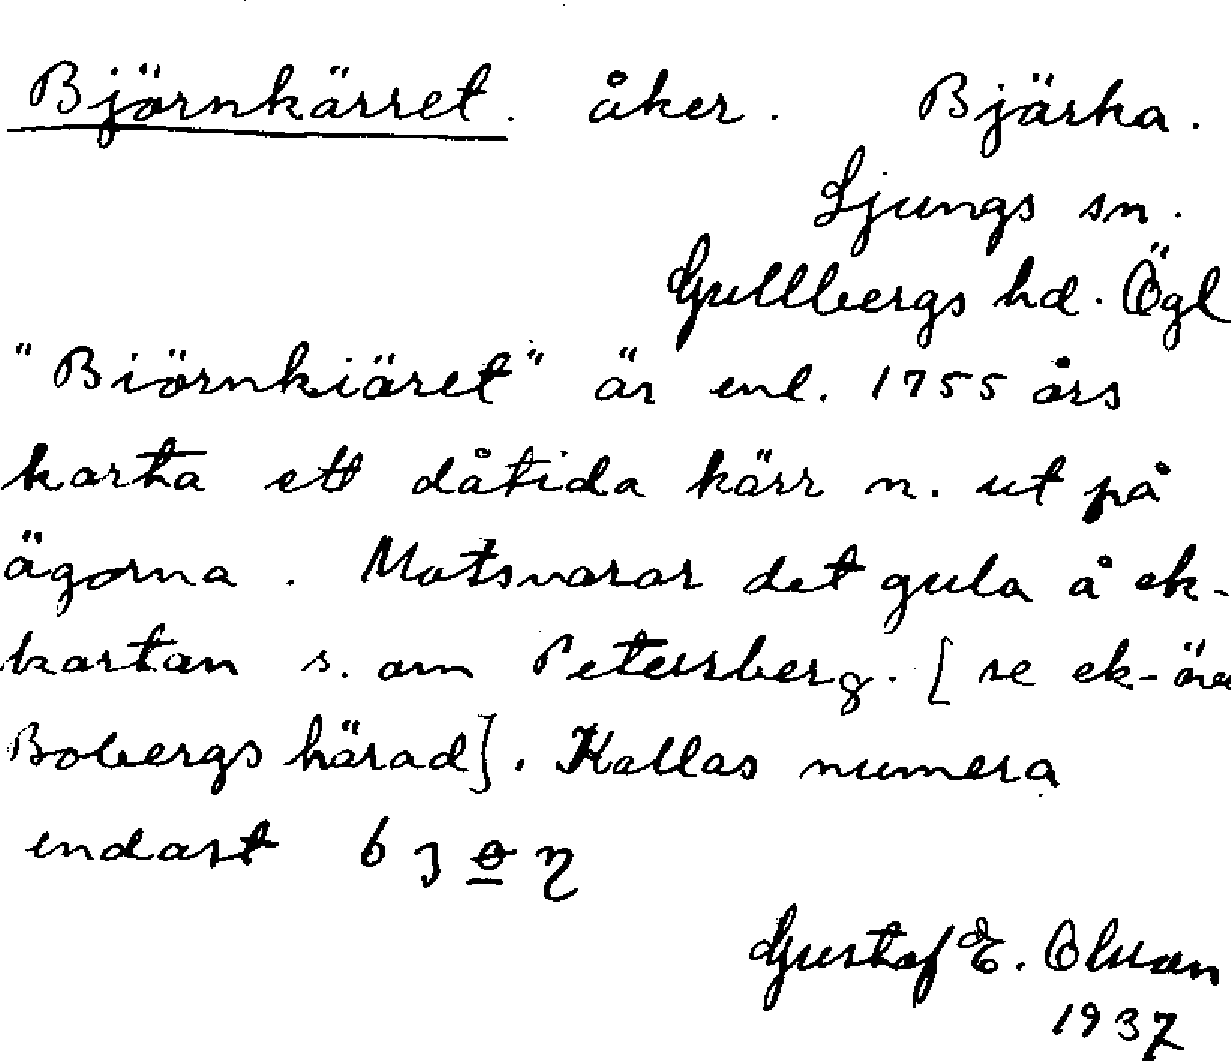 Björnkärret. åker. Bjärka.
Ljungs sn.
Gullbergs hd. Ögl
"Biörnkiäret" är enl. 1755 års
karta ett dåtida kärr n. ut på
ägorna. Motsvarar det gula å ek-
kartan s. om Petersberg. [se ek-
Bobergs härad]. Kallas numera
endast
Gustaf E. Olsson
1937